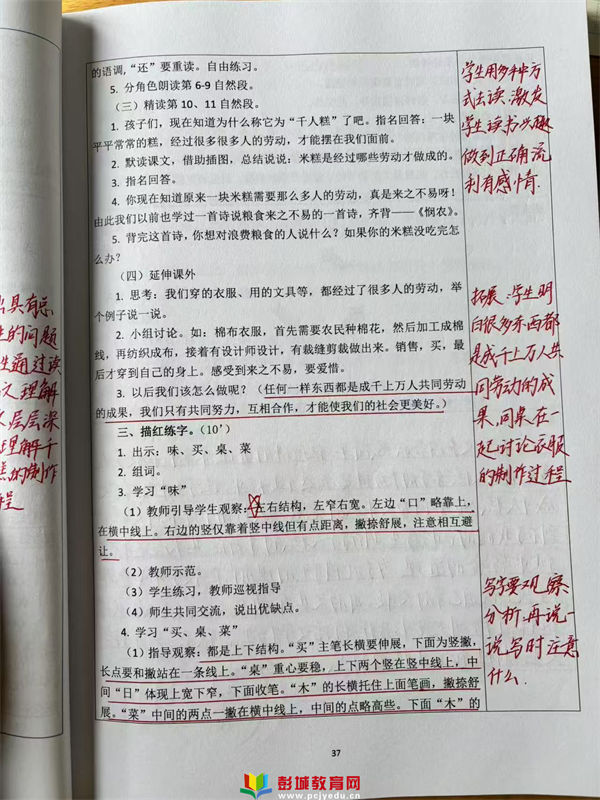 的语调,“还”要重读。自由练习。
5. 分角色朗读第 6-9 自然段。
(三)精读第 10、11 自然段。
1. 孩子们,现在知道为什么称它为“千人糕”了吧。指名回答:一块
平平常常的糕,经过很多很多人的劳动,才能摆在我们面前。
2. 默读课文,借助插图,总结说说:米糕是经过哪些劳动才做成的。
3. 指名回答。
4. 你现在知道原来一块米糕需要那么多人的劳动,真是来之不易呀!
由此我们以前也学过一首诗说粮食来之不易的一首诗,齐背——《悯农》。
5. 背完这首诗,你想对浪费粮食的人说什么?如果你的米糕没吃完怎
么办?
(四)延伸课外
1. 思考:我们穿的衣服、用的文具等,都经过了很多人的劳动,举
个例子说一说。
2. 小组讨论。如:棉布衣服,首先需要农民种棉花,然后加工成棉
线,再纺织成布,接着有设计师设计,有裁缝剪裁做出来。销售,买,最
后才穿到自己的身上。感受到来之不易,要爱惜。
3. 以后我们该怎么做呢?(任何一样东西都是成千上万人共同劳动
的成果,我们只有共同努力,互相合作,才能使我们的社会更美好。)
三、描红练字。(10’)
1. 出示:味、买、桌、菜
2. 组词。
3. 学习“味”
(1)教师引导学生观察:左右结构,左窄右宽。左边“口”略靠上,
在横中线上。右边的竖仅靠着竖中线但有点距离,撇捺舒展,注意相互避
让。
(2)教师示范。
(3)学生练习,教师巡视指导
(4)师生共同交流,说出优缺点。
4. 学习“买、桌、菜”
(1)指导观察:都是上下结构。“买”主笔长横要伸展,下面为竖撇,
长点要和撇站在一条线上。“桌”重心要稳,上下两个竖在竖中线上,中
间“日”体现上宽下窄,下面收笔。“木”的长横托住上面笔画,撇捺舒
展。“菜”中间的两点一撇在横中线上,中间的点略高些。下面“木”的
37
学生用多种方
式去读.激发
学生读书兴趣
做到正确流
利有感情.
拓展:学生明
白很多东西都
是成千上万人共
同劳动的成
果,同桌在一
起讨论衣服
的制作过程
写字要观察
分析.再说一
说写时注意
什么.
具有总
的问题
生通过读
文理解
层层深
理解千
糕的制作
程
彭城教育网
www.pcjyedu.cn